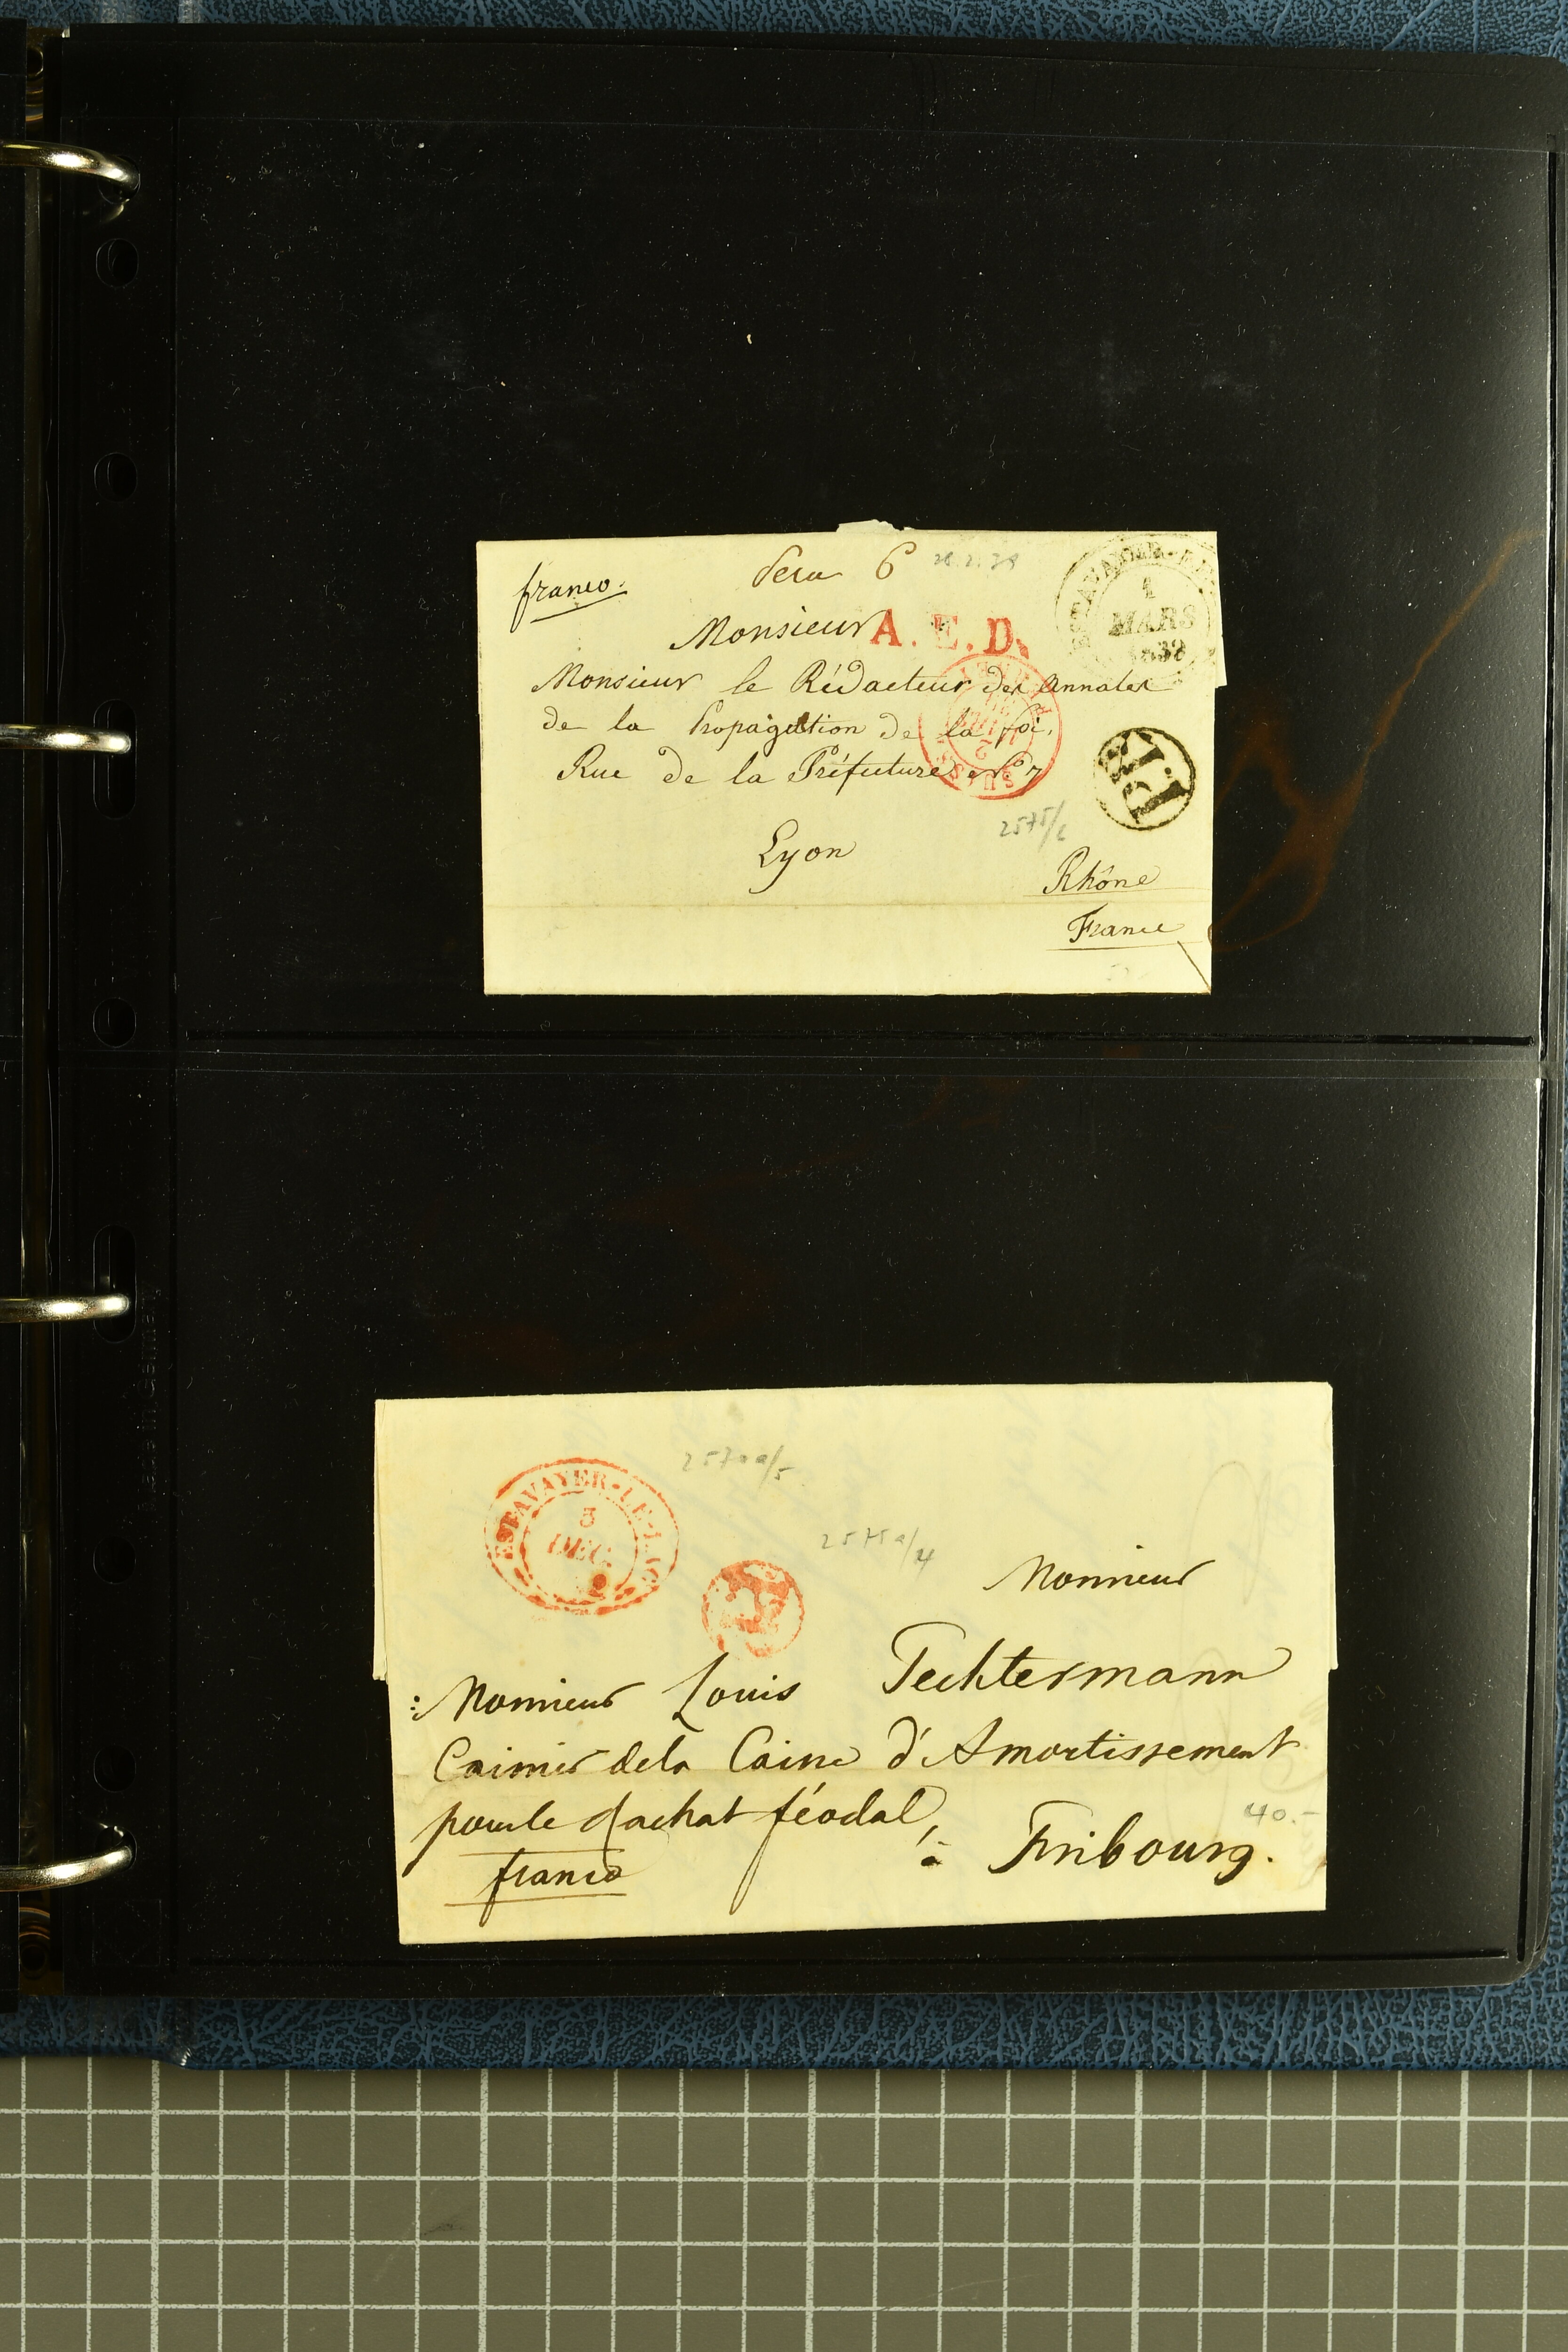 franco.
6
28.2.38
Monsieur
A. E. D.
ESTAVAYER
1
MARS
1838
Monsieur le Rédacteur des Annales
de la Propagation de la foi,
Rue de la Préfecture No 7
P.P.
2575/6
Lyon
Rhône
France
ESTAVAYER-LE-LAC
3
DEC.
2570a/5
2575a/4
Monsieur
: Monsieur Louis Techtermann
Caissier de la Caisse d'Amortissement
pour le Rachat féodal,
40.-
à Fribourg.
franco
Made in Germany